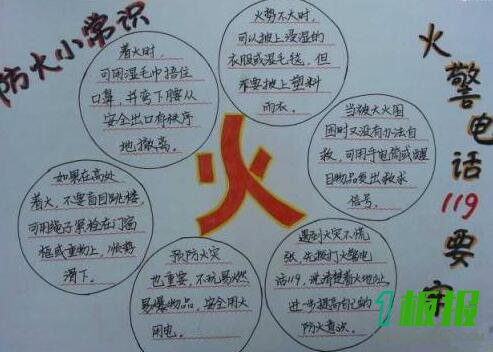 防火小常识
着火时，
可用湿毛巾捂住
口鼻，并弯下腰从
安全出口有秩序
地撤离。
火势不大时，
可以披上浸湿的
衣服或湿毛毯，但
不要披上塑料
雨衣。
当被大火围
困时又没有办法自
救，可用手电筒或醒
目物品发出求救
信号。
如果在高处
着火，不要盲目跳楼，
可用绳子紧栓在门窗
框或重物上，顺势
滑下。
火
预防火灾
也重要，不玩易燃
易爆物品，安全用火
用电。
遇到火灾不慌
张，先拨打火警电
话119，说清楚着火地址，
进一步提高自己的
防火意识。
火警电话119要牢
板报